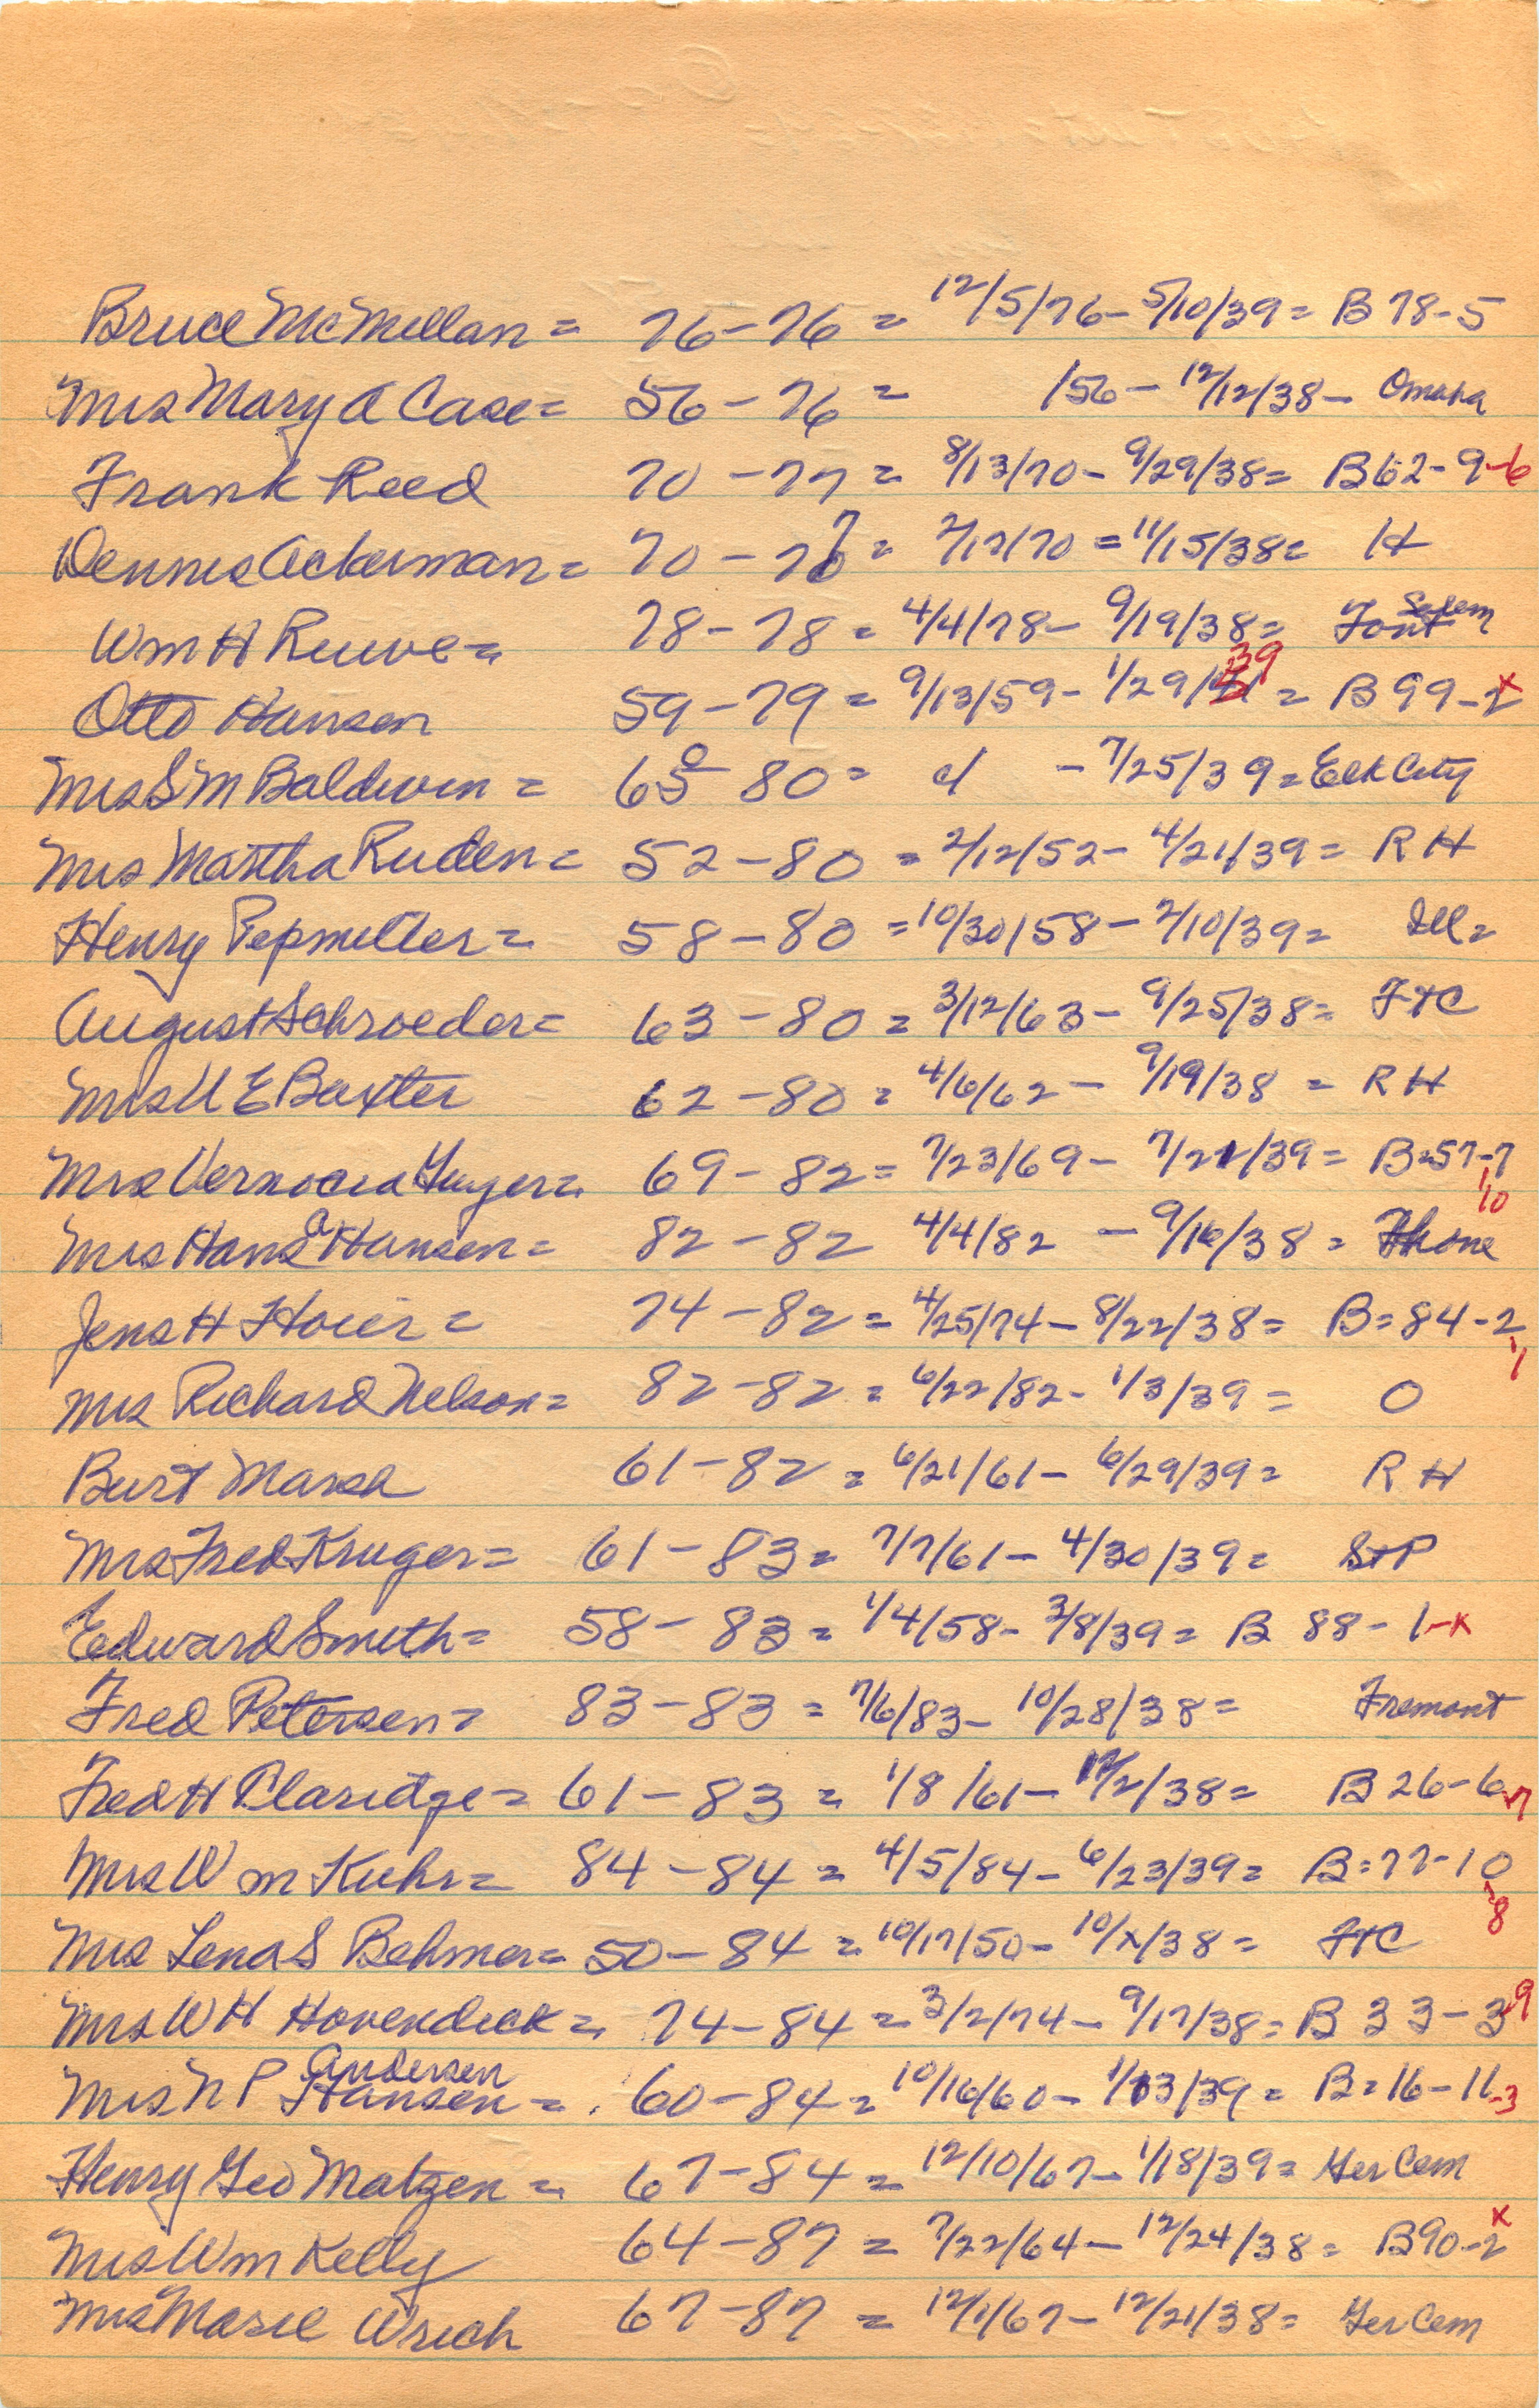 Bruce McMillan = 76-76 = 12/5/76- 5/10/39 = B 78-5
Mrs Mary A Case = 56-76 = /56- 12/12/38- Omaha
Frank Reed 70-77 = 8/13/70- 9/29/38 = B 62-9-6
Dennis Ackerman = 70-77 = 2/12/70 = 11/15/38 = H
Wm H Ruwe = 78-78 = 4/4/78- 9/19/38 = Salem
Otto Hansen 59-79 = 9/13/59- 1/29/39 = B 99-2 x
Mrs S M Baldwin = 60 80 = d - 7/25/39 = Elk City
Mrs Martha Ruden = 52-80 = 2/12/52- 4/21/39 = R H
Henry Pepmiller = 58-80 = 10/30/58- 2/10/39 = Ill =
August Schroeder = 63-80 = 3/12/63- 9/25/38 = FtC
Mrs U E Baxter 62-80 = 4/6/62- 9/19/38 = R H
Mrs 69-82 = 7/23/69- 7/21/39 = B=57-7 10
Mrs Hans A Hansen = 82-82 4/4/82 - 9/16/38 =
Jens H Hoier = 74-82 = 4/25/74- 8/22/38 = B=84-2 1
Mrs Richard Nelson = 82-82 = 6/22/82- 1/3/39 = O
Burt Marsh 61-82 = 6/21/61- 6/29/39 = R H
Mrs Fred Kruger = 61-83 = 7/7/61- 4/30/39 = StP
Edward Smith = 58-83 = 1/4/58- 3/8/39 = B 88-1-x
Fred Petersen = 83-83 = 7/6/83- 10/28/38 = Fremont
Fred H Claridge = 61-83 = 1/8/61- 12/2/38 = B 26-6-7
Mrs Wm Kuhr = 84-84 = 4/5/84- 6/23/39 = B=77-10 -8
Mrs Lena S Behmer = 50-84 = 10/17/50- 10/x/38 = FtC
Mrs W H Hovendick = 74-84 = 3/2/74- 9/17/38 = B 33-3-9
Mrs N P Hansen Andersen = 60-84 = 10/16/60- 1/13/39 = B=16-11-3
Henry Geo Matzen = 67-84 = 12/10/67- 1/18/39 = Ger Cem
Mrs Wm Kelly 64-87 = 7/22/64- 12/24/38 = B90-2 x
Mrs Marie Wrich 67-87 = 12/1/67- 12/21/38 = Ger Cem